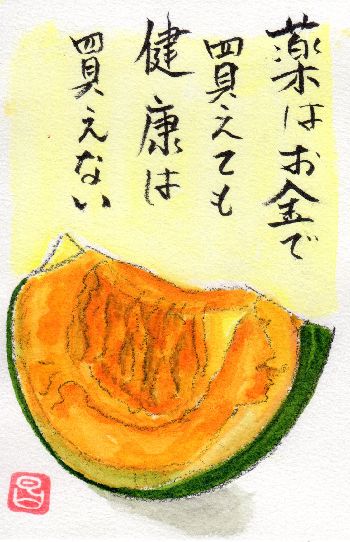 薬はお金で
買えても
健康は
買えない